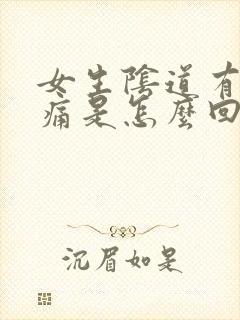 女生陰道有
痛是怎麼回
沉眉如是